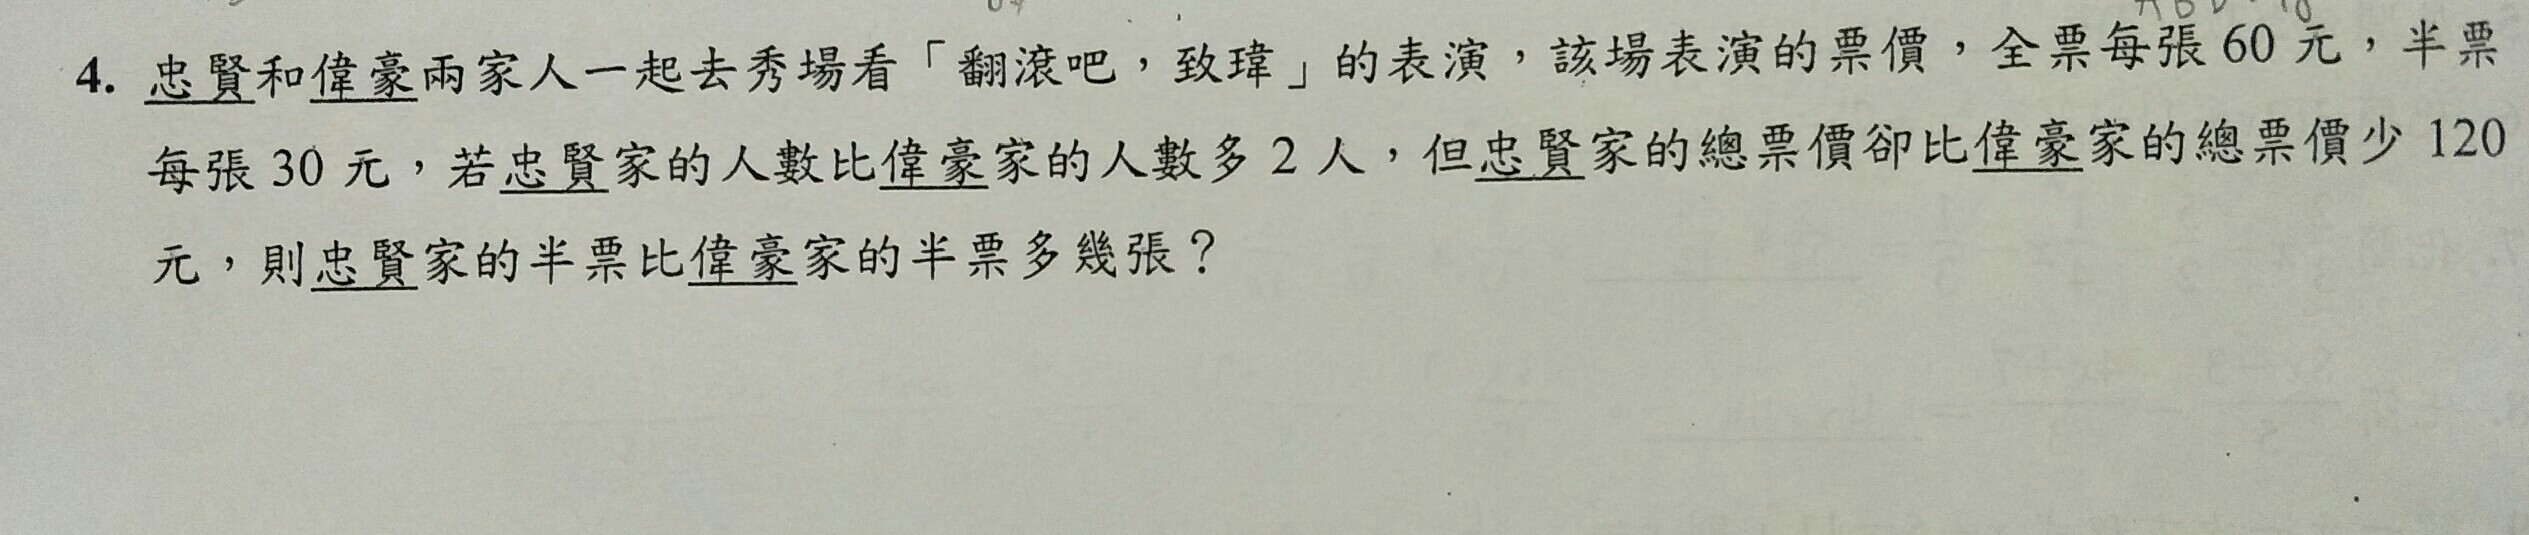 4. 忠賢和偉豪兩家人一起去秀場看「翻滾吧，致瑋」的表演，該場表演的票價，全票每張 60 元，半票
每張 30 元，若忠賢家的人數比偉豪家的人數多 2 人，但忠賢家的總票價卻比偉豪家的總票價少 120
元，則忠賢家的半票比偉豪家的半票多幾張？